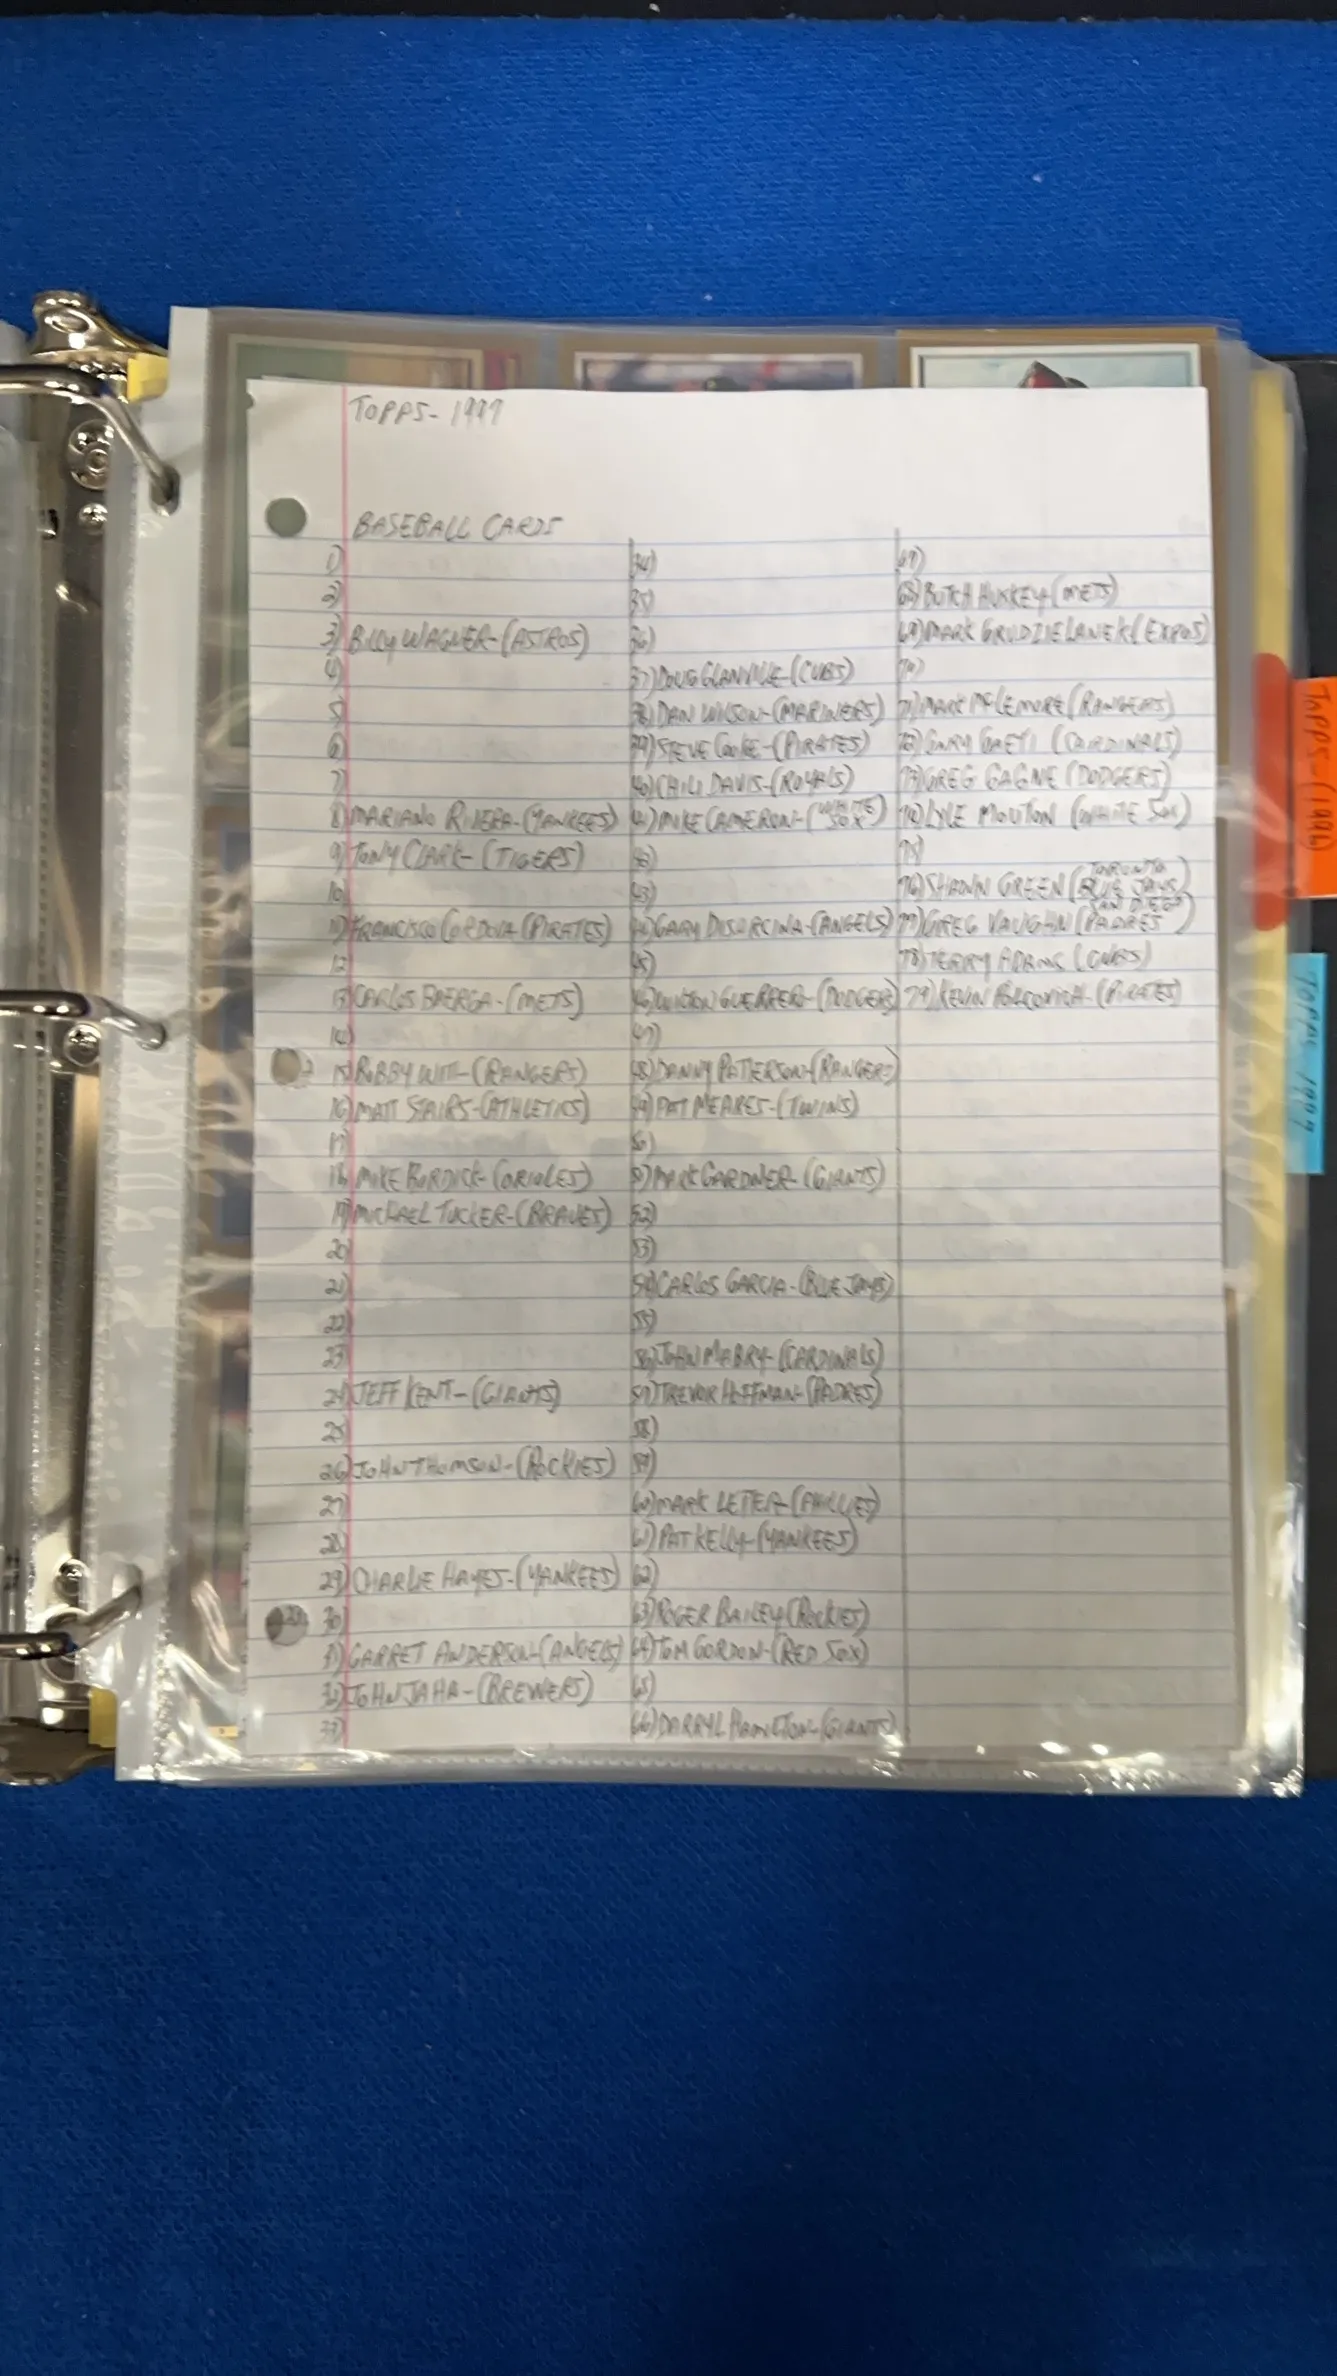 TOPPS- 1997
BASEBALL CARDS
1)
2)
3) BILLY WAGNER-(ASTROS)
4)
5
6)
7)
8) MARIANO RIVERA-(YANKEES)
9) TONY CLARK-(TIGERS)
10)
11) FRANCISCO CORDOVA (PIRATES)
12
13) CARLOS BAERGA-(METS)
14)
15) BOBBY WITT-(RANGERS)
16) MATT STAIRS-(ATHLETICS)
17)
18) MIKE BORDICK-(ORIOLES)
19) MICHAEL TUCKER-(BRAVES)
20)
21)
22)
23)
24) JEFF KENT-(GIANTS)
25)
26) JOHN THOMSON-(ROCKIES)
27)
28)
29) CHARLIE HAYES-(YANKEES)
30)
31) GARRET ANDERSON-(ANGELS)
32) JOHN JAHA-(BREWERS)
33)
34)
35)
36)
37) DOUG GLANVILLE-(CUBS)
38) DAN WILSON-(MARINERS)
39) STEVE COOKE-(PIRATES)
40) CHILI DAVIS-(ROYALS)
41) MIKE CAMERON-(WHITE SOX)
42)
43)
44) GARY DISARCINA-(ANGELS)
45)
46) WILTON GUERRERO-(DODGERS)
47)
48) DANNY PATTERSON-(RANGERS)
49) PAT MEARES-(TWINS)
50)
51) MARK GARDNER-(GIANTS)
52)
53)
54) CARLOS GARCIA-(BLUE JAYS)
55)
56) JOHN MABRY-(CARDINALS)
57) TREVOR HOFFMAN-(PADRES)
58)
59)
60) MARK LEITER-(PHILLIES)
61) PAT KELLY-(YANKEES)
62)
63) ROGER BAILEY (ROCKIES)
64) TOM GORDON-(RED SOX)
65)
66) DARRYL HAMILTON-(GIANTS)
67)
68) BUTCH HUSKEY-(METS)
69) MARK GRUDZIELANEK (EXPOS)
70)
71) MARK McLEMORE (RANGERS)
72) GARY GAETI (CARDINALS)
73) GREG GAGNE (DODGERS)
74) LYLE MOUTON (WHITE SOX)
75)
76) SHAWN GREEN (TORONTO BLUE JAYS)
77) GREG VAUGHN (SAN DIEGO PADRES)
78) TERRY ADAMS (CUBS)
79) KEVIN POLCOVICH-(PIRATES)
TOPPS-(1996)
TOPPS-1997